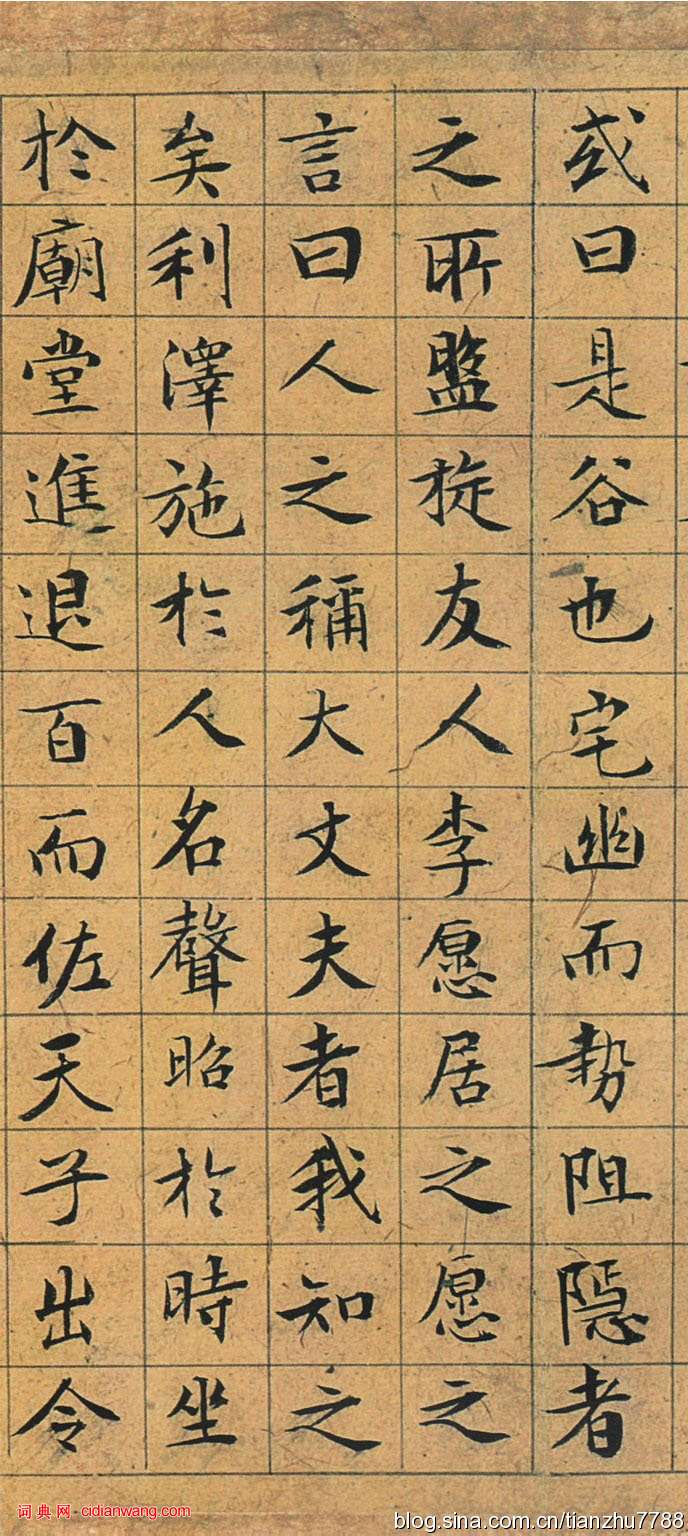 或曰是谷也宅幽而勢阻隱者
之所盤旋友人李愿居之愿之
言曰人之稱大丈夫者我知之
矣利澤施於人名聲昭於時坐
於廟堂進退百而佐天子出令
词典网·cidianwang.com
blog.sina.com.cn/tianzhu7788